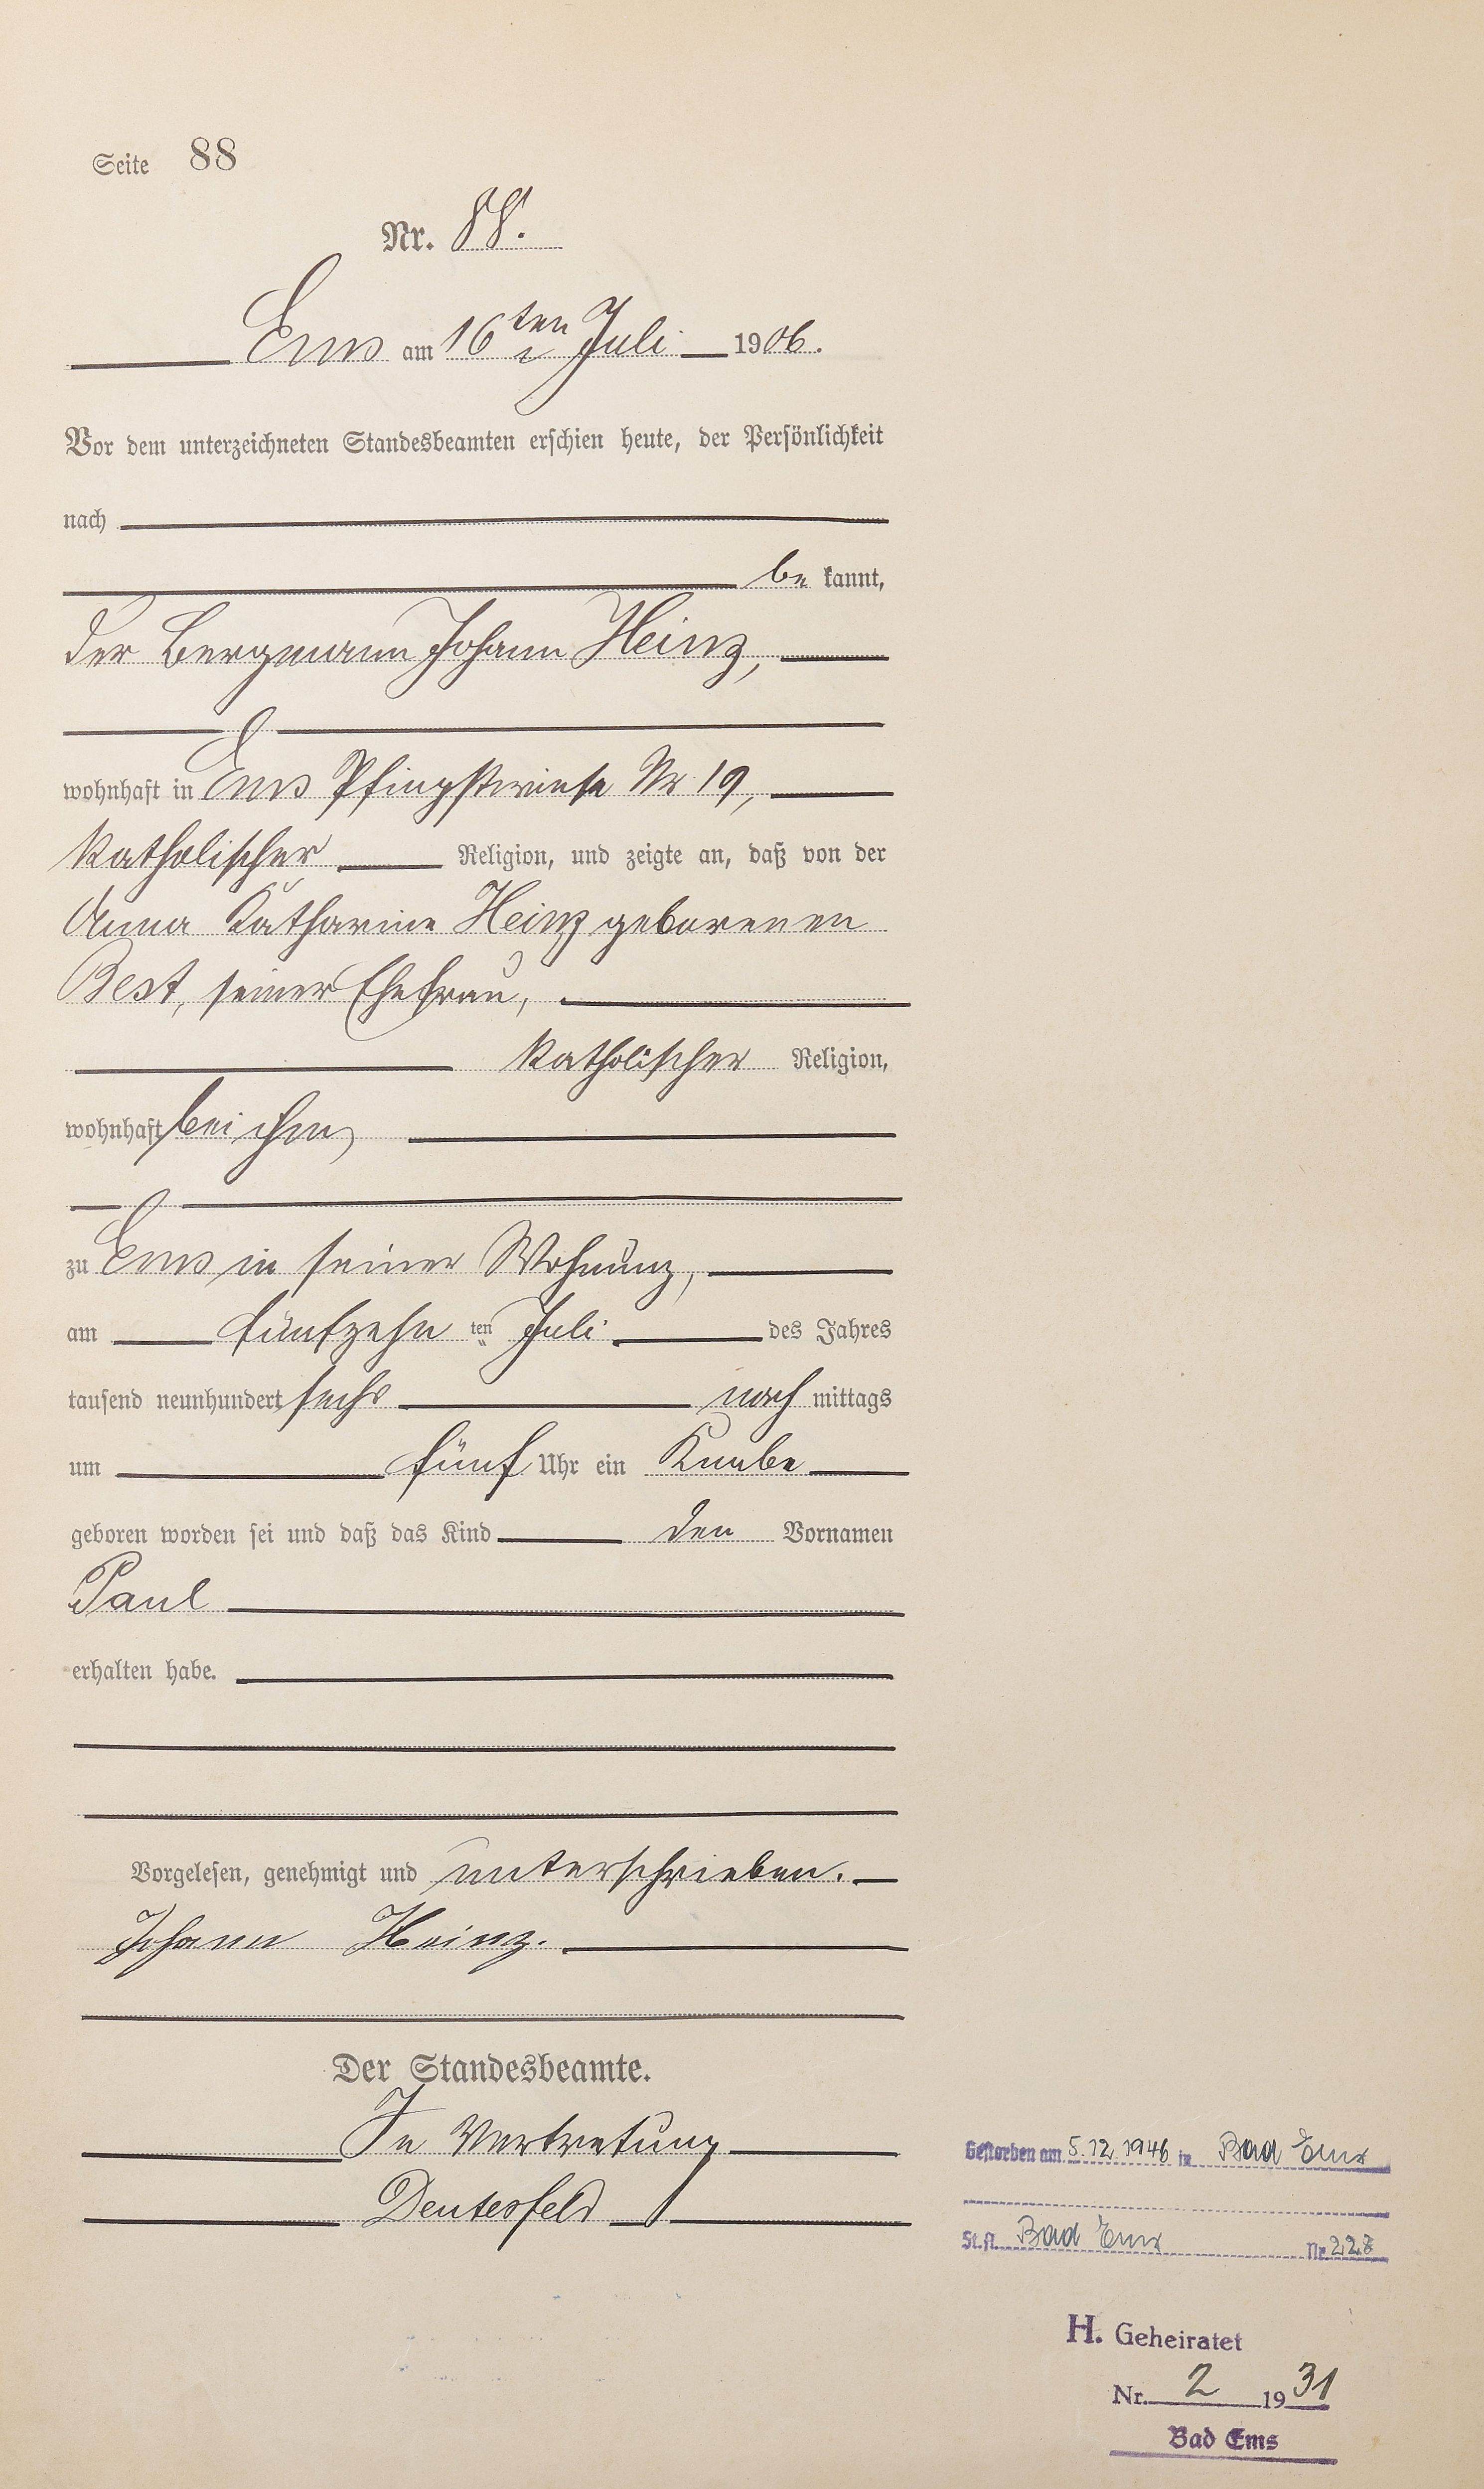 Seite 88
Nr. 88.
Ems am 16ten Juli 1906.
Vor dem unterzeichneten Standesbeamten erschien heute, der Persönlichkeit
nach
be kannt,
der Bergmann Johann Heinz,
wohnhaft in Ems Pfingstwiese Nr 19,
katholischer Religion, und zeigte an, daß von der
Anna Katharine Heinz geborenen
Best, seiner Ehefrau,
katholischer Religion,
wohnhaft bei ihm,
zu Ems in seiner Wohnung,
am fünfzehn ten Juli des Jahres
tausend neunhundert sechs nach mittags
um fünf Uhr ein Knabe
geboren worden sei und daß das Kind den Vornamen
Paul
erhalten habe.
Vorgelesen, genehmigt und unterschrieben.
Johann Heinz.
Der Standesbeamte.
In Vertretung
Deutesfeld
Gestorben am 5.12.1946 in Bad Ems
St.A. Bad Ems Nr. 228
H. Geheiratet
Nr. 2 1931
Bad Ems